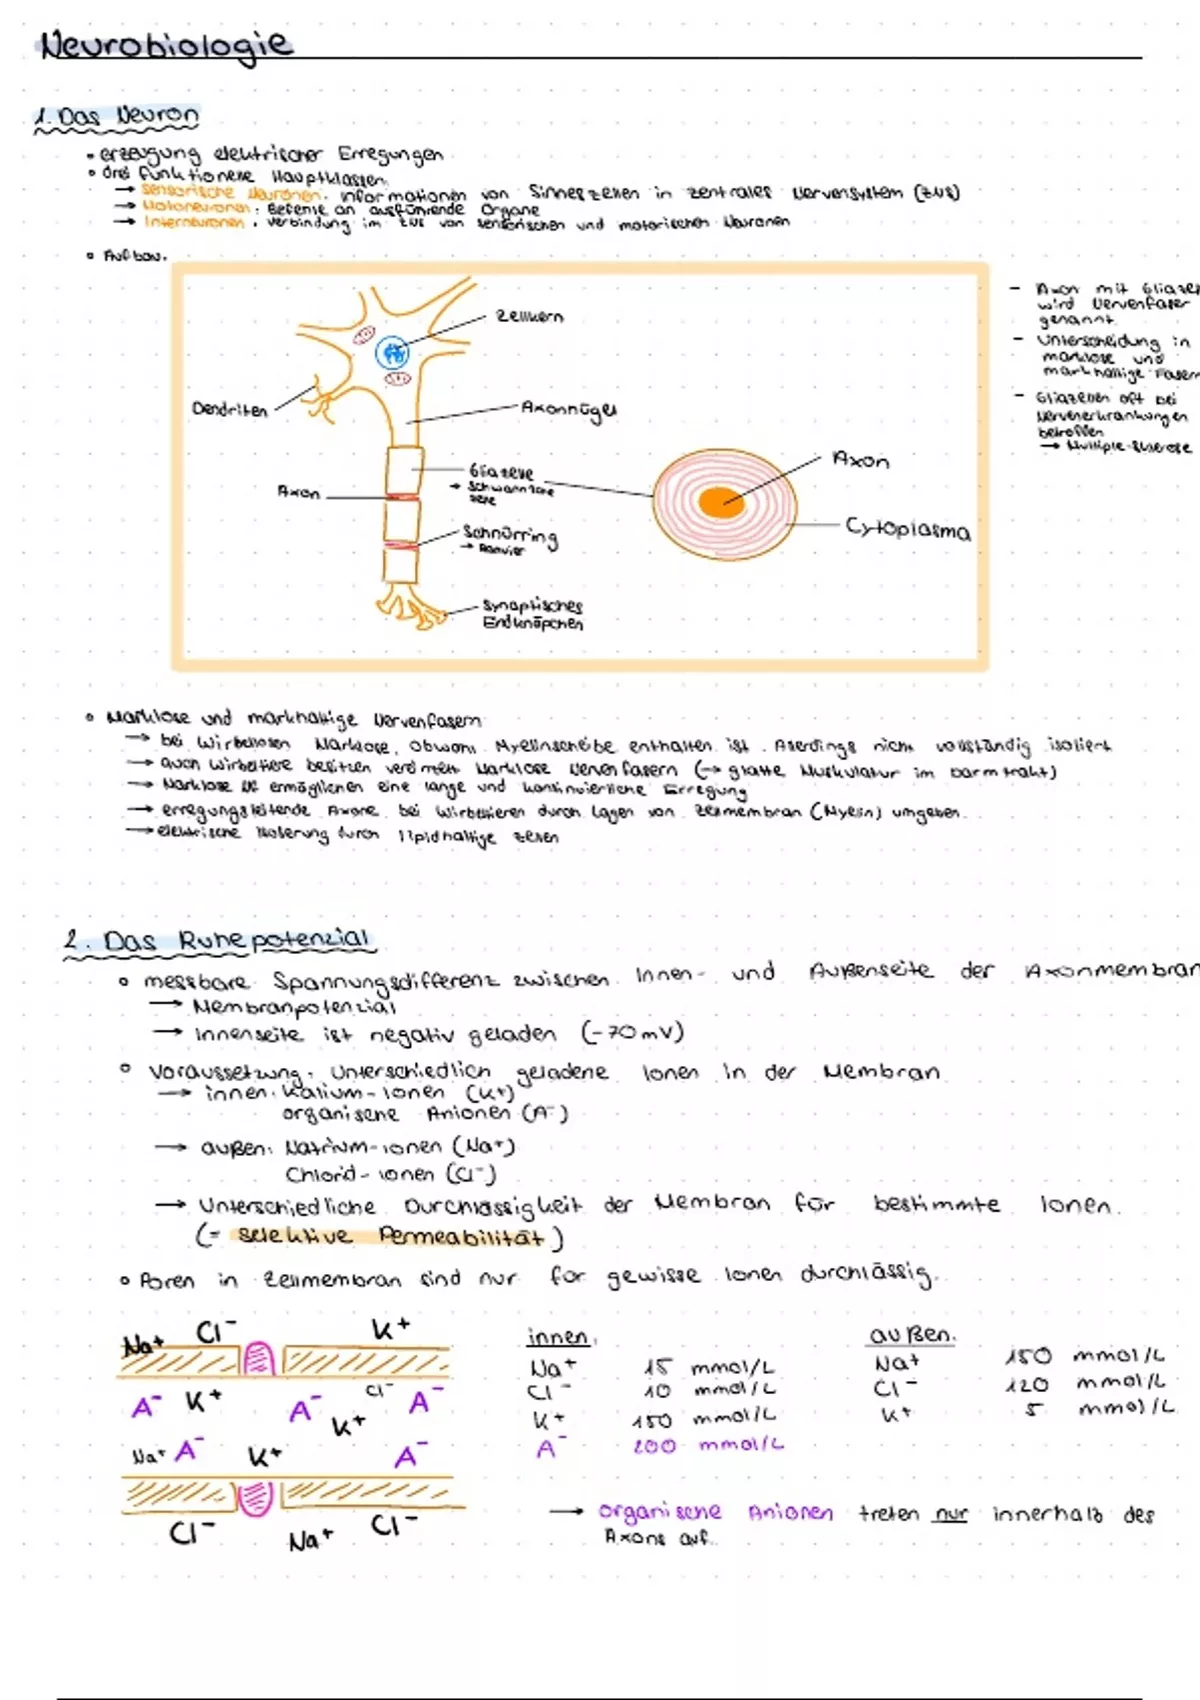 Neurobiologie
1. Das Neuron
• erzeugung elektrischer Erregungen
• drei funktionelle Hauptklassen:
→ sensorische Neuronen: Informationen von Sinneszellen in zentrales Nervensystem (ZNS)
→ Motoneuronen: Befehle an ausführende Organe
→ Interneuronen: Verbindung im ZNS von sensorischen und motorischen Neuronen
• Aufbau:
Zellkern
Dendriten
Axonhügel
Gliazelle
→ Schwann'sche
Zelle
Axon
Schnürring
→ Ranvier
Synaptisches
Endknöpchen
Axon
Cytoplasma
- Axon mit Gliazel
wird Nervenfaser
genannt
- Unterscheidung in
marklose und
markhaltige Fasern
- Gliazellen oft bei
Nervenerkrankungen
betroffen
→ Multiple-Sklerose
• Marklose und markhaltige Nervenfasern
→ bei Wirbellosen Marklose, Obwohl Myelinscheibe enthalten ist. Allerdings nicht vollständig isoliert
→ auch Wirbeltiere besitzen vereinzelt Marklose Nervenfasern (→ glatte Muskulatur im Darmtrakt)
→ Marklose ermöglichen eine lange und kontinuierliche Erregung
→ erregungsleitende Axone bei Wirbeltieren durch Lagen von Zellmembran (Myelin) umgeben.
→ elektrische Isolierung durch lipidhaltige Zellen
2. Das Ruhepotenzial
• messbare Spannungsdifferenz zwischen Innen- und Außenseite der Axonmembran
→ Membranpotenzial
→ Innenseite ist negativ geladen (-70mV)
• Voraussetzung: Unterschiedlich geladene Ionen in der Membran
→ innen: Kalium-Ionen (K+)
organische Anionen (A⁻)
→ außen: Natrium-ionen (Na⁺)
Chlorid-ionen (Cl⁻)
→ Unterschiedliche Durchlässigkeit der Membran für bestimmte Ionen.
(= selektive Permeabilität)
• Poren in Zellmembran sind nur für gewisse Ionen durchlässig.
Na+ Cl⁻ K+
A⁻ K+ A⁻ K+ Cl⁻ A⁻
Na+ A⁻ K+ A⁻
Cl⁻ Na+ Cl⁻
innen:
Na+ 15 mmol/L
Cl⁻ 10 mmol/L
K+ 150 mmol/L
A⁻ 200 mmol/L
außen:
Na+ 150 mmol/L
Cl⁻ 120 mmol/L
K+ 5 mmol/L
→ organische Anionen treten nur innerhalb des
Axons auf.